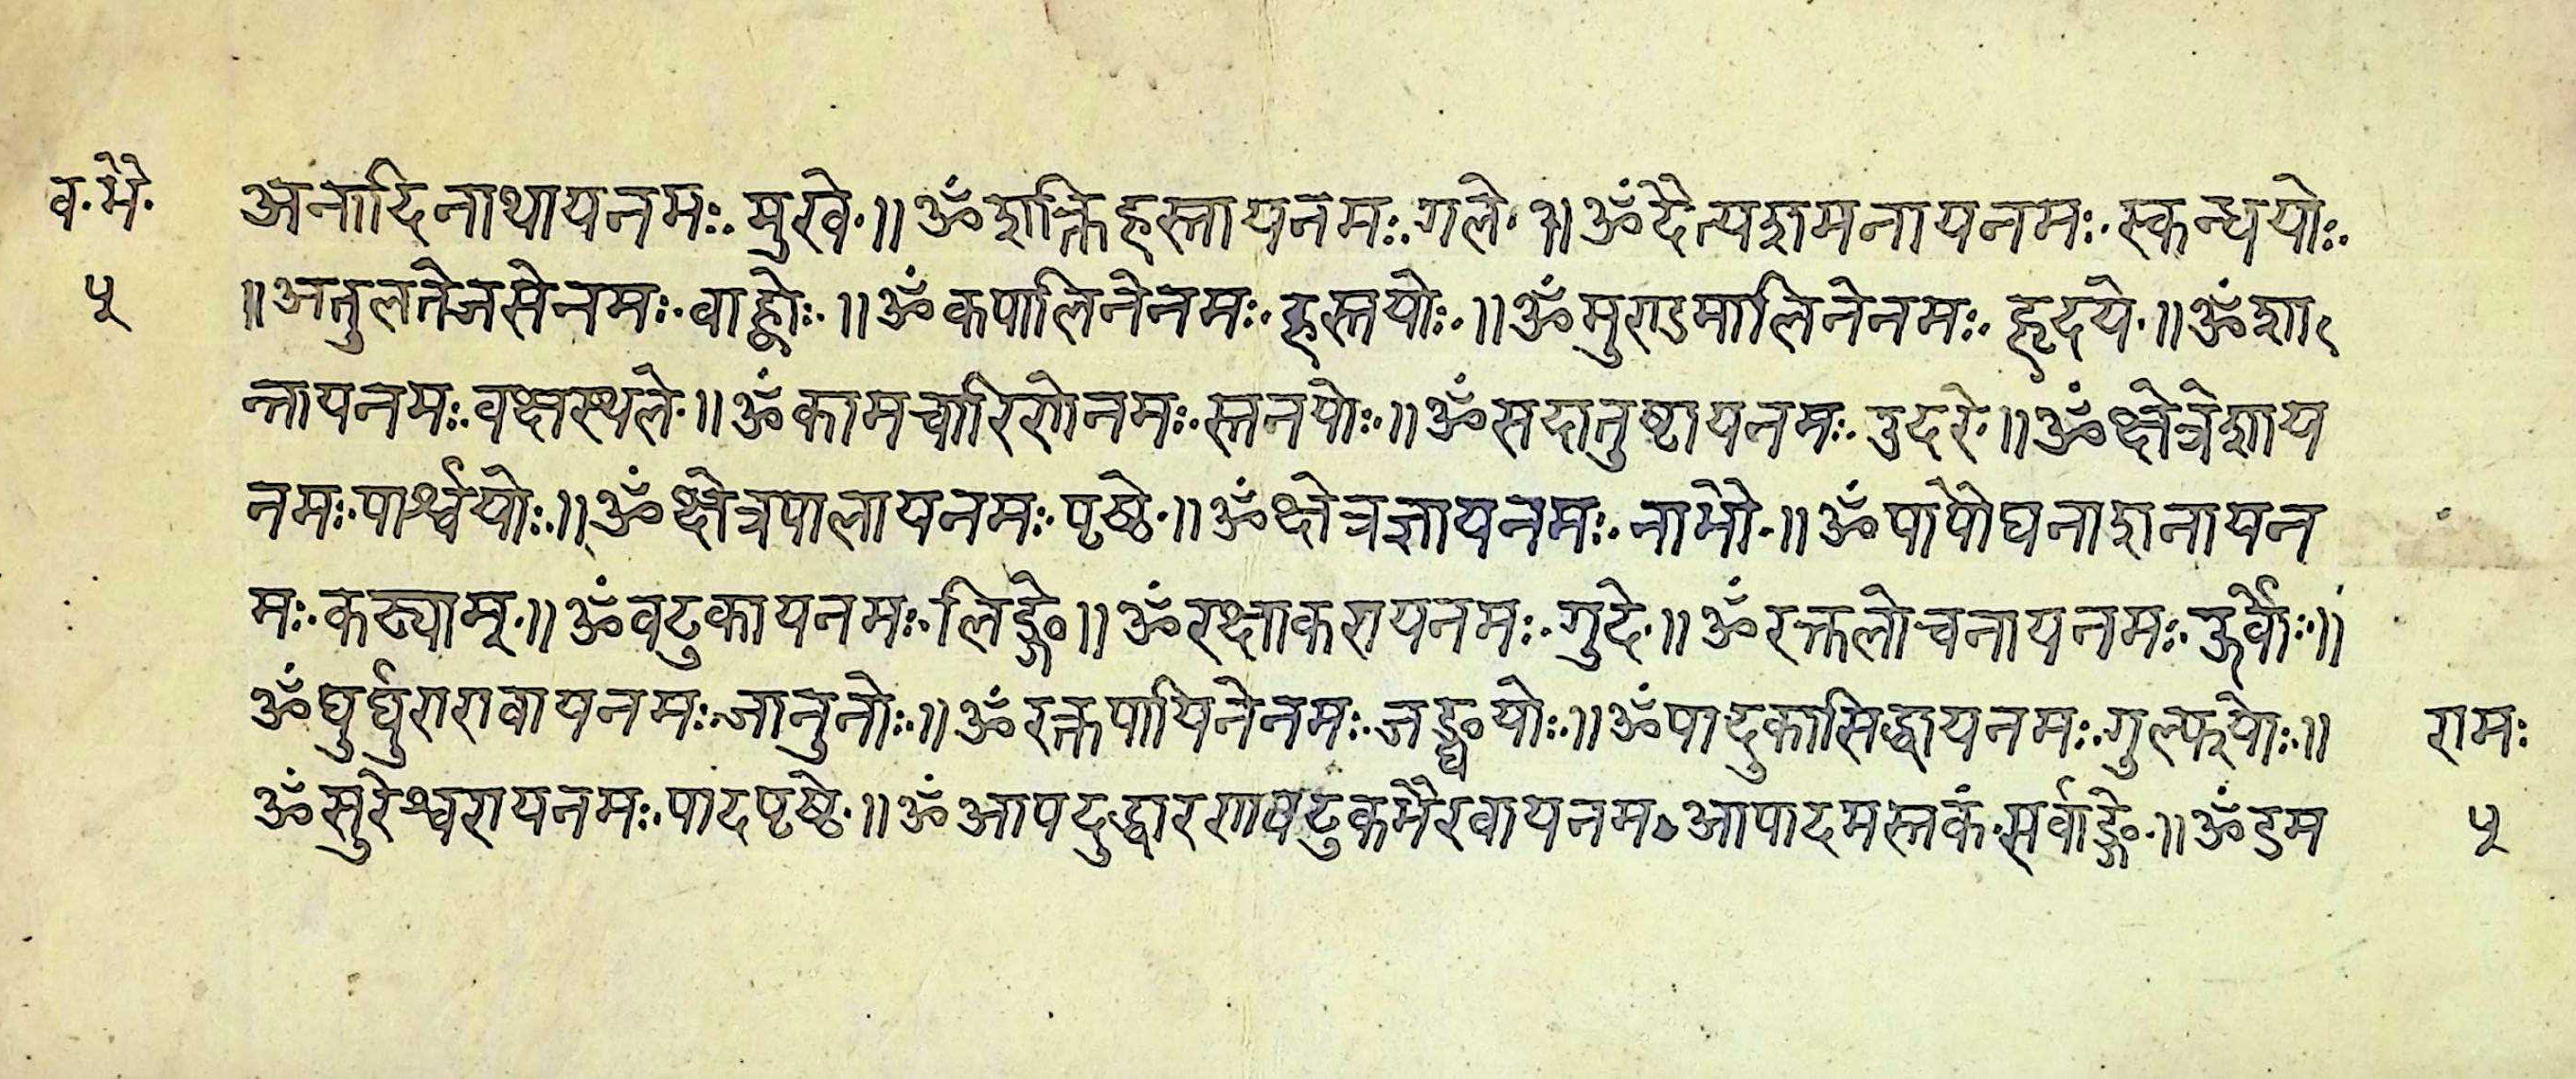 व.भै. अनादिनाथायनमः.मुखे.॥ॐशक्तिहस्तायनमः.गले.॥ॐदैत्यशमनायनमः.स्कन्धयोः.
५ ॥अतुलतेजसेनमः.वाह्वोः.॥ॐकपालिनेनमः.हस्तयोः.॥ॐमुण्डमालिनेनमः.हृदये.॥ॐशा
न्तायनमः.वक्षस्थले.॥ॐकामचारिणेनमः.स्तनयोः.॥ॐसदातुष्टायनमः.उदरे.॥ॐक्षेत्रेशाय
नमः.पार्श्वयोः.॥ॐक्षेत्रपालायनमः.पृष्ठे.॥ॐक्षेत्रज्ञायनमः.नाभौ.॥ॐपापौघनाशनायन
मः.कट्याम्.॥ॐवटुकायनमः.लिङ्गे॥ॐरक्षाकरायनमः.गुदे.॥ॐरक्तलोचनायनमः.ऊर्वोः.॥
ॐघुर्घुरारावायनमः.जानुनोः.॥ॐरक्तपायिनेनमः.जङ्घयोः.॥ॐपादुकासिद्धायनमः.गुल्फयोः.॥ रामः
ॐसुरेश्वरायनमः.पादपृष्ठे.॥ॐआपदुद्धारणवटुकभैरवायनमः आपादमस्तकं.सर्वाङ्गे.॥ॐडम ५